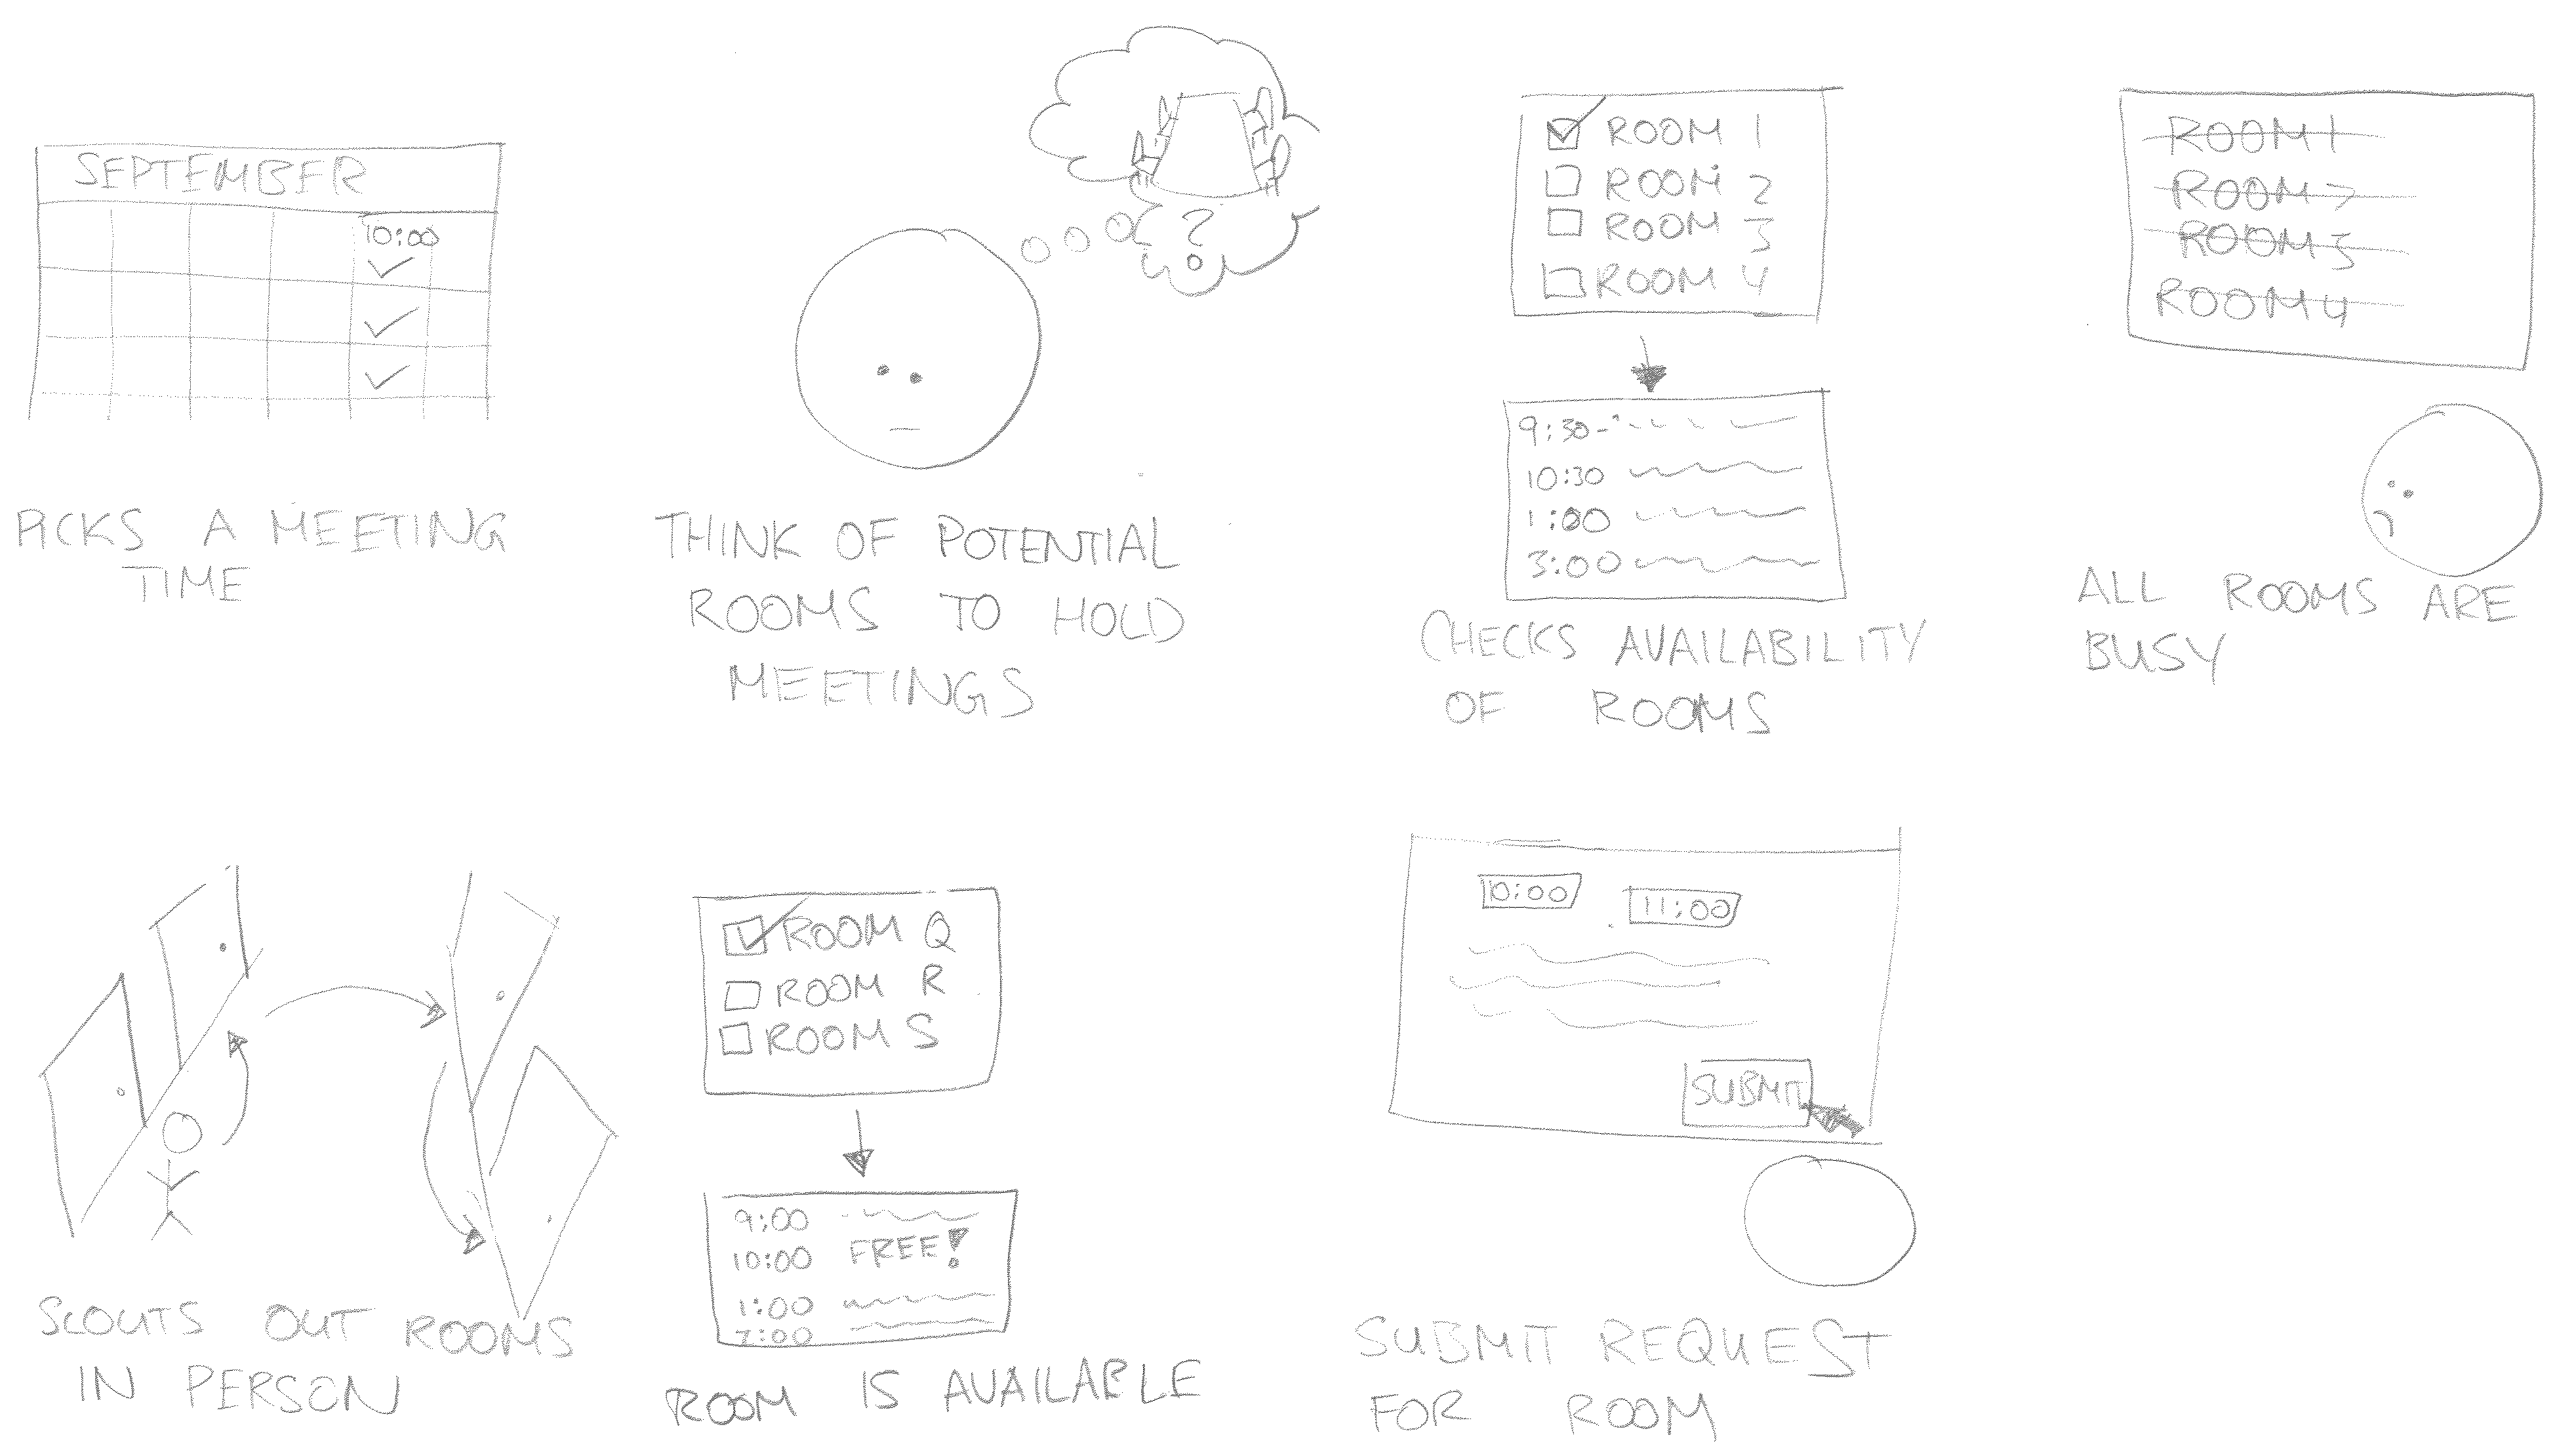 SEPTEMBER
10:00
PICKS A MEETING
TIME
?
THINK OF POTENTIAL
ROOMS TO HOLD
MEETINGS
ROOM 1
ROOM 2
ROOM 3
ROOM 4
9:30-
10:30
1:00
3:00
CHECKS AVAILABILITY
OF ROOMS
ROOM 1
ROOM 2
ROOM 3
ROOM 4
ALL ROOMS ARE
BUSY
SCOUTS OUT ROOMS
IN PERSON
ROOM Q
ROOM R
ROOM S
9:00
10:00 FREE!
1:00
2:00
ROOM IS AVAILABLE
10:00 11:00
SUBMIT
SUBMIT REQUEST
FOR ROOM